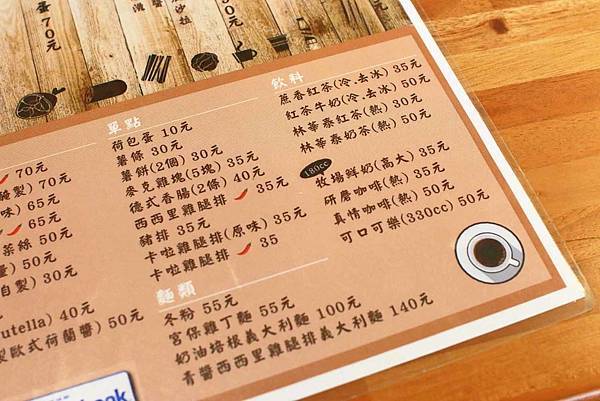 蛋 70元
元
單點
荷包蛋 10元
薯條 30元
薯餅(2個) 30元
麥克雞塊(5塊) 35元
德式香腸(2條) 40元
西西里雞腿排 35元
豬排 35元
卡啦雞腿排(原味) 35元
卡啦雞腿排 35
飲料
蔗香紅茶(冷.去冰) 35元
紅茶牛奶(冷.去冰) 50元
林華泰紅茶(熱) 30元
林華泰奶茶(熱) 50元
180cc
牧場鮮奶(高大) 35元
研磨咖啡(熱) 35元
真情咖啡(熱) 50元
可口可樂(330cc) 50元
麵類
冬粉 55元
宮保雞丁麵 55元
奶油培根義大利麵 100元
青醬西西里雞腿排義大利麵 140元
70元
製) 70元
味) 65元
65元
菜絲 50元
) 50元
自製) 30元
utella) 40元
製歐式荷蘭醬) 50元
ook